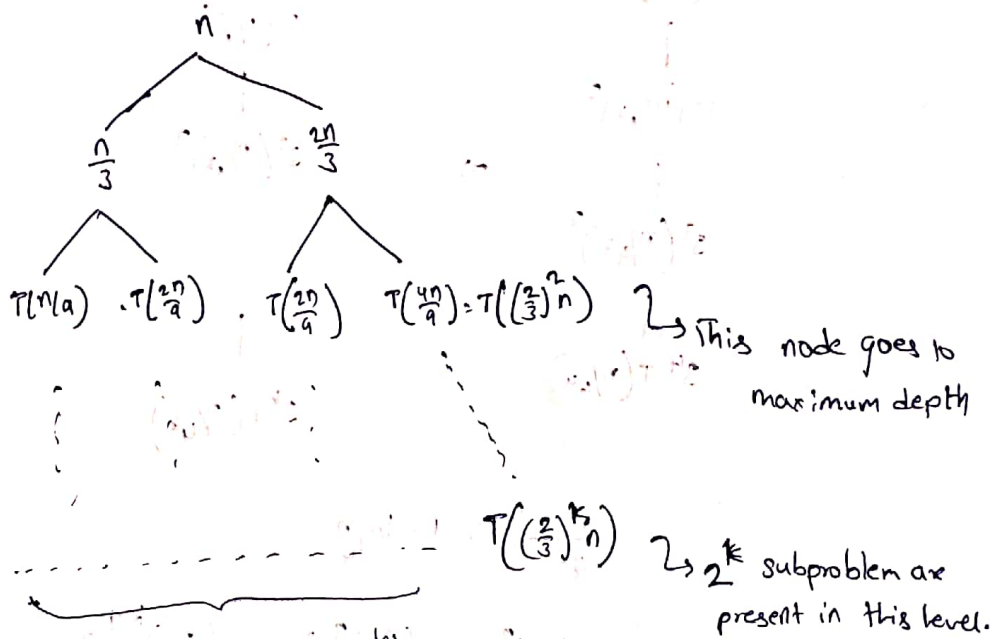 n.
n/3 2n/3
T(n/9) . T(2n/9) . T(2n/9) T(4n/9) = T((2/3)^2 n) ↳ This node goes to
maximum depth
T((2/3)^k n) ↳ 2^k subproblem are
present in this level.